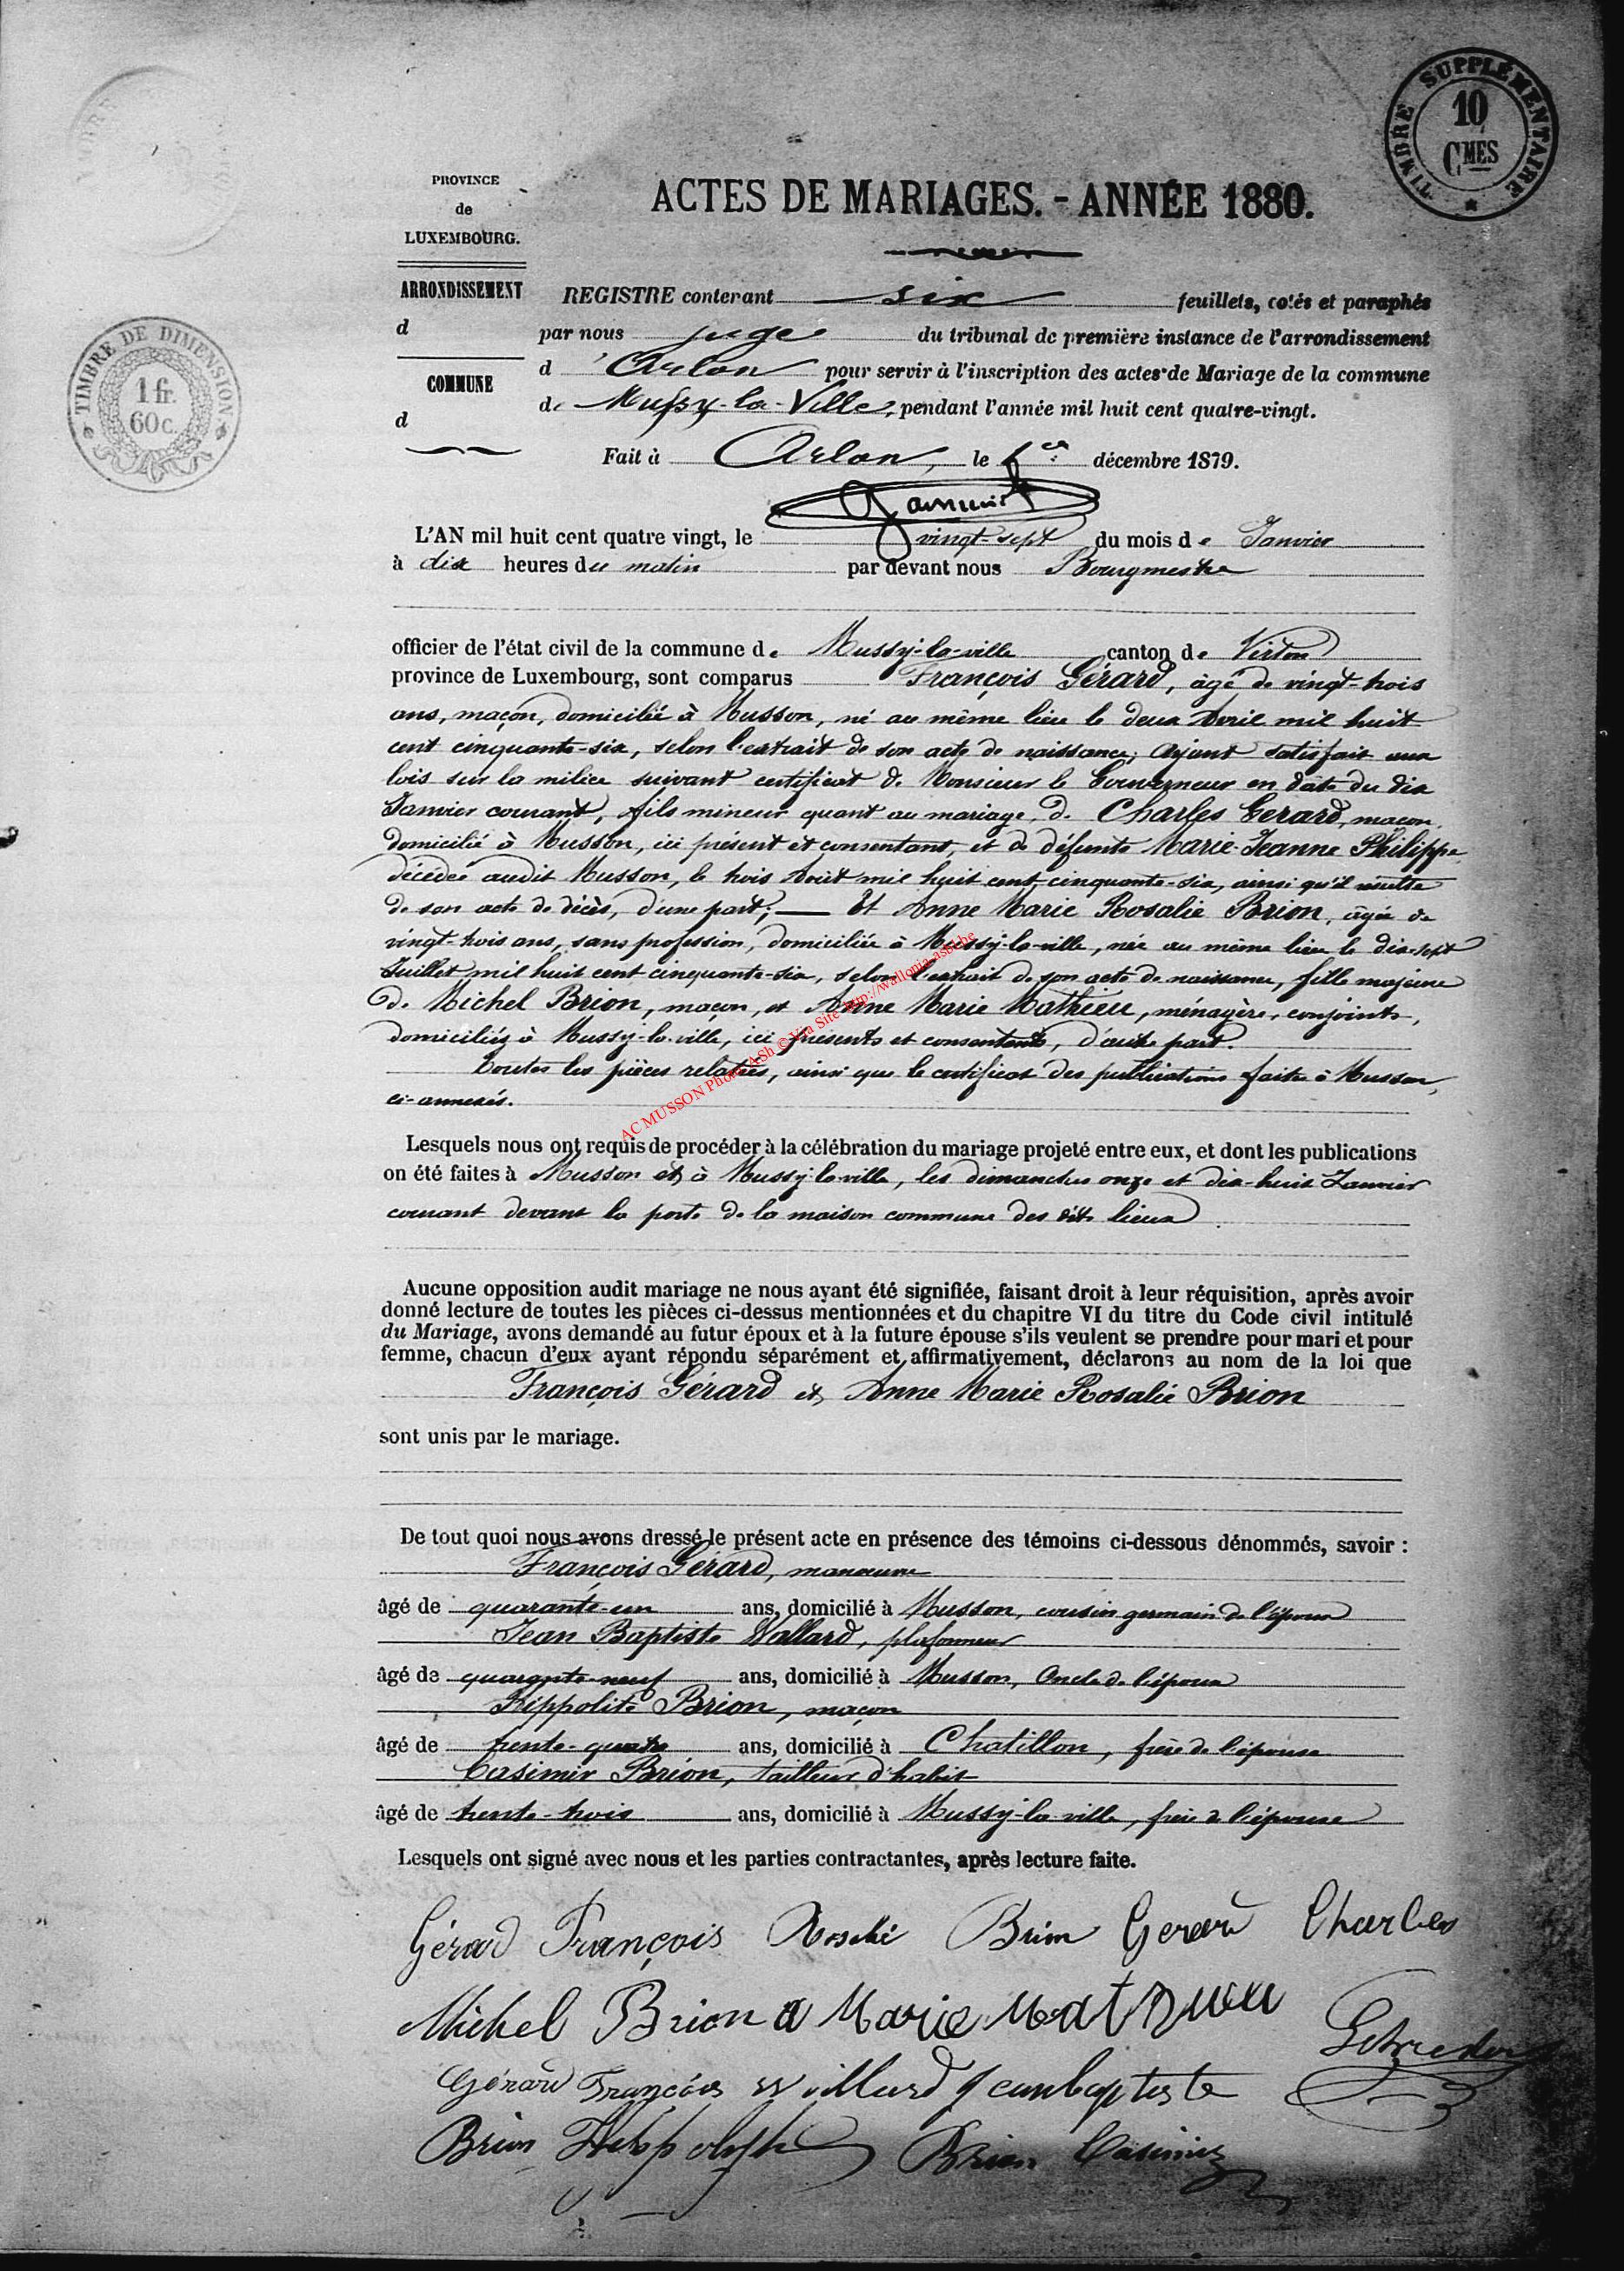 TIMBRE SUPPLÉMENTAIRE
10
CMES
PROVINCE
de
LUXEMBOURG.
ACTES DE MARIAGES. - ANNÉE 1880.
ARRONDISSEMENT
d
COMMUNE
d
TIMBRE DE DIMENSION
1 fr.
60 c.
REGISTRE contenant six feuillets, cotés et paraphés
par nous juge du tribunal de première instance de l'arrondissement
d'Arlon pour servir à l'inscription des actes de Mariage de la commune
de Mussy-la-Ville, pendant l'année mil huit cent quatre-vingt.
Fait à Arlon, le 1er décembre 1879.
L'AN mil huit cent quatre vingt, le vingt-sept du mois de Janvier
à dix heures du matin par devant nous Bourgmestre
officier de l'état civil de la commune de Mussy-la-ville canton de Virton
province de Luxembourg, sont comparus François Gérard, âgé de vingt-trois
ans, maçon, domicilié à Musson, né au même lieu le deux Avril mil huit
cent cinquante-six, selon l'extrait de son acte de naissance; Ayant satisfait aux
lois sur la milice suivant certificat de Monsieur le Gouverneur en date du dix
Janvier courant, fils mineur quant au mariage, de Charles Gerard, maçon,
domicilié à Musson, ici présent et consentant, et de défunte Marie-Jeanne Philippe
décédée audit Musson, le trois Août mil huit cent cinquante-six, ainsi qu'il résulte
de son acte de décès, d'une part; — Et Anne Marie Rosalie Brion, âgée de
vingt-trois ans, sans profession, domiciliée à Mussy-la-ville, née au même lieu le dix-sept
Juillet mil huit cent cinquante-six, selon l'extrait de son acte de naissance, fille majeure
de Michel Brion, maçon, et Anne Marie Mathieu, ménagère, conjoints,
domiciliés à Mussy-la-ville, ici présents et consentants, d'autre part.
Toutes les pièces relatées, ainsi que le certificat des publications faites à Musson,
ci-annexés.
AC MUSSON Photo ASh © Via Site http://wallonia-asbl.be
Lesquels nous ont requis de procéder à la célébration du mariage projeté entre eux, et dont les publications
on été faites à Musson et à Mussy-la-ville, les dimanches onze et dix-huit Janvier
courant devant la porte de la maison commune des dits lieux
Aucune opposition audit mariage ne nous ayant été signifiée, faisant droit à leur réquisition, après avoir
donné lecture de toutes les pièces ci-dessus mentionnées et du chapitre VI du titre du Code civil intitulé
du Mariage, avons demandé au futur époux et à la future épouse s'ils veulent se prendre pour mari et pour
femme, chacun d'eux ayant répondu séparément et affirmativement, déclarons au nom de la loi que
François Gérard et Anne Marie Rosalie Brion
sont unis par le mariage.
De tout quoi nous avons dressé le présent acte en présence des témoins ci-dessous dénommés, savoir :
François Gérard, manœuvre
âgé de quarante-un ans, domicilié à Musson, cousin germain de l'époux
Jean Baptiste Wallard, plafonneur
âgé de quarante-neuf ans, domicilié à Musson, Oncle de l'époux
Hippolite Brion, maçon
âgé de trente-quatre ans, domicilié à Chatillon, frère de l'épouse
Casimir Brion, tailleur d'habit
âgé de trente-trois ans, domicilié à Mussy-la-ville, frère de l'épouse
Lesquels ont signé avec nous et les parties contractantes, après lecture faite.
Gérard François Brion Gerard Charles
Michel Brion a Marie
Gérard François willard jeanbaptiste
Brion Brion Casimir